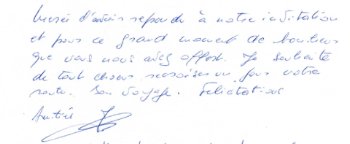 Merci d'avoir répondu à notre invitation
et pour ce grand moment de bonheur
que vous nous avez offert. Je souhaite
de tout coeur un jour votre
route. Bon voyage. Félicitations
André